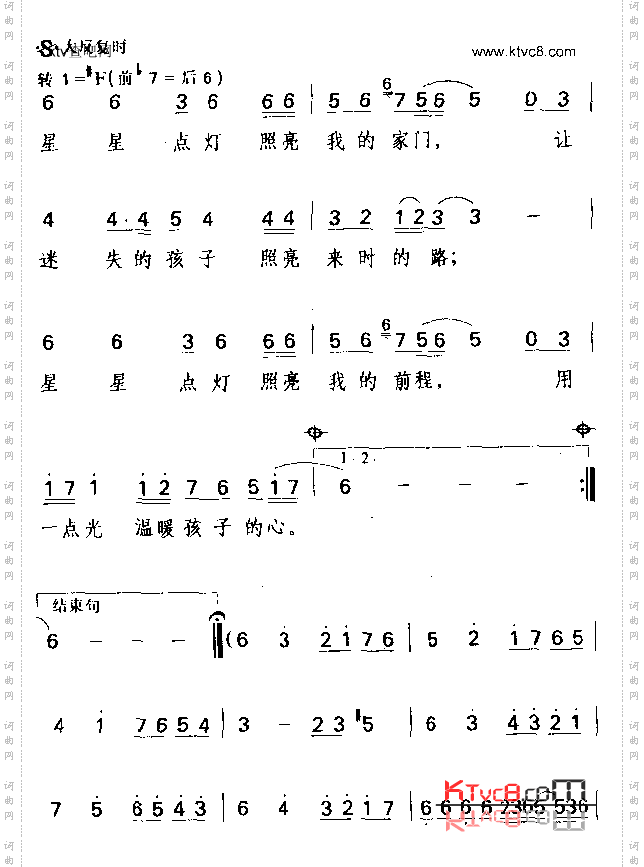 大反复时
www.ktvc8.com
转 1=#F(前 7=后6)
6 6 3 6 6 6 | 5 6 6 7 5 6 5 0 3 |
星 星 点 灯 照亮 我的家门, 让
4 4·4 5 4 4 4 | 3 2 1 2 3 3 — |
迷 失的孩子 照亮 来时的路;
6 6 3 6 6 6 | 5 6 6 7 5 6 5 0 3 |
星 星 点 灯 照亮 我的前程, 用
1·2·
1 7 1 1 2 7 6 5 1 7 | 6 — — — :|
一点光 温暖孩子的心。
结束句
6 — — — | (6 3 2 1 7 6 | 5 2 1 7 6 5 |
4 1 7 6 5 4 | 3 — 2 3 #5 | 6 3 4 3 2 1 |
7 5 6 5 4 3 | 6 4 3 2 1 7 |
KTvc8.com
词曲网